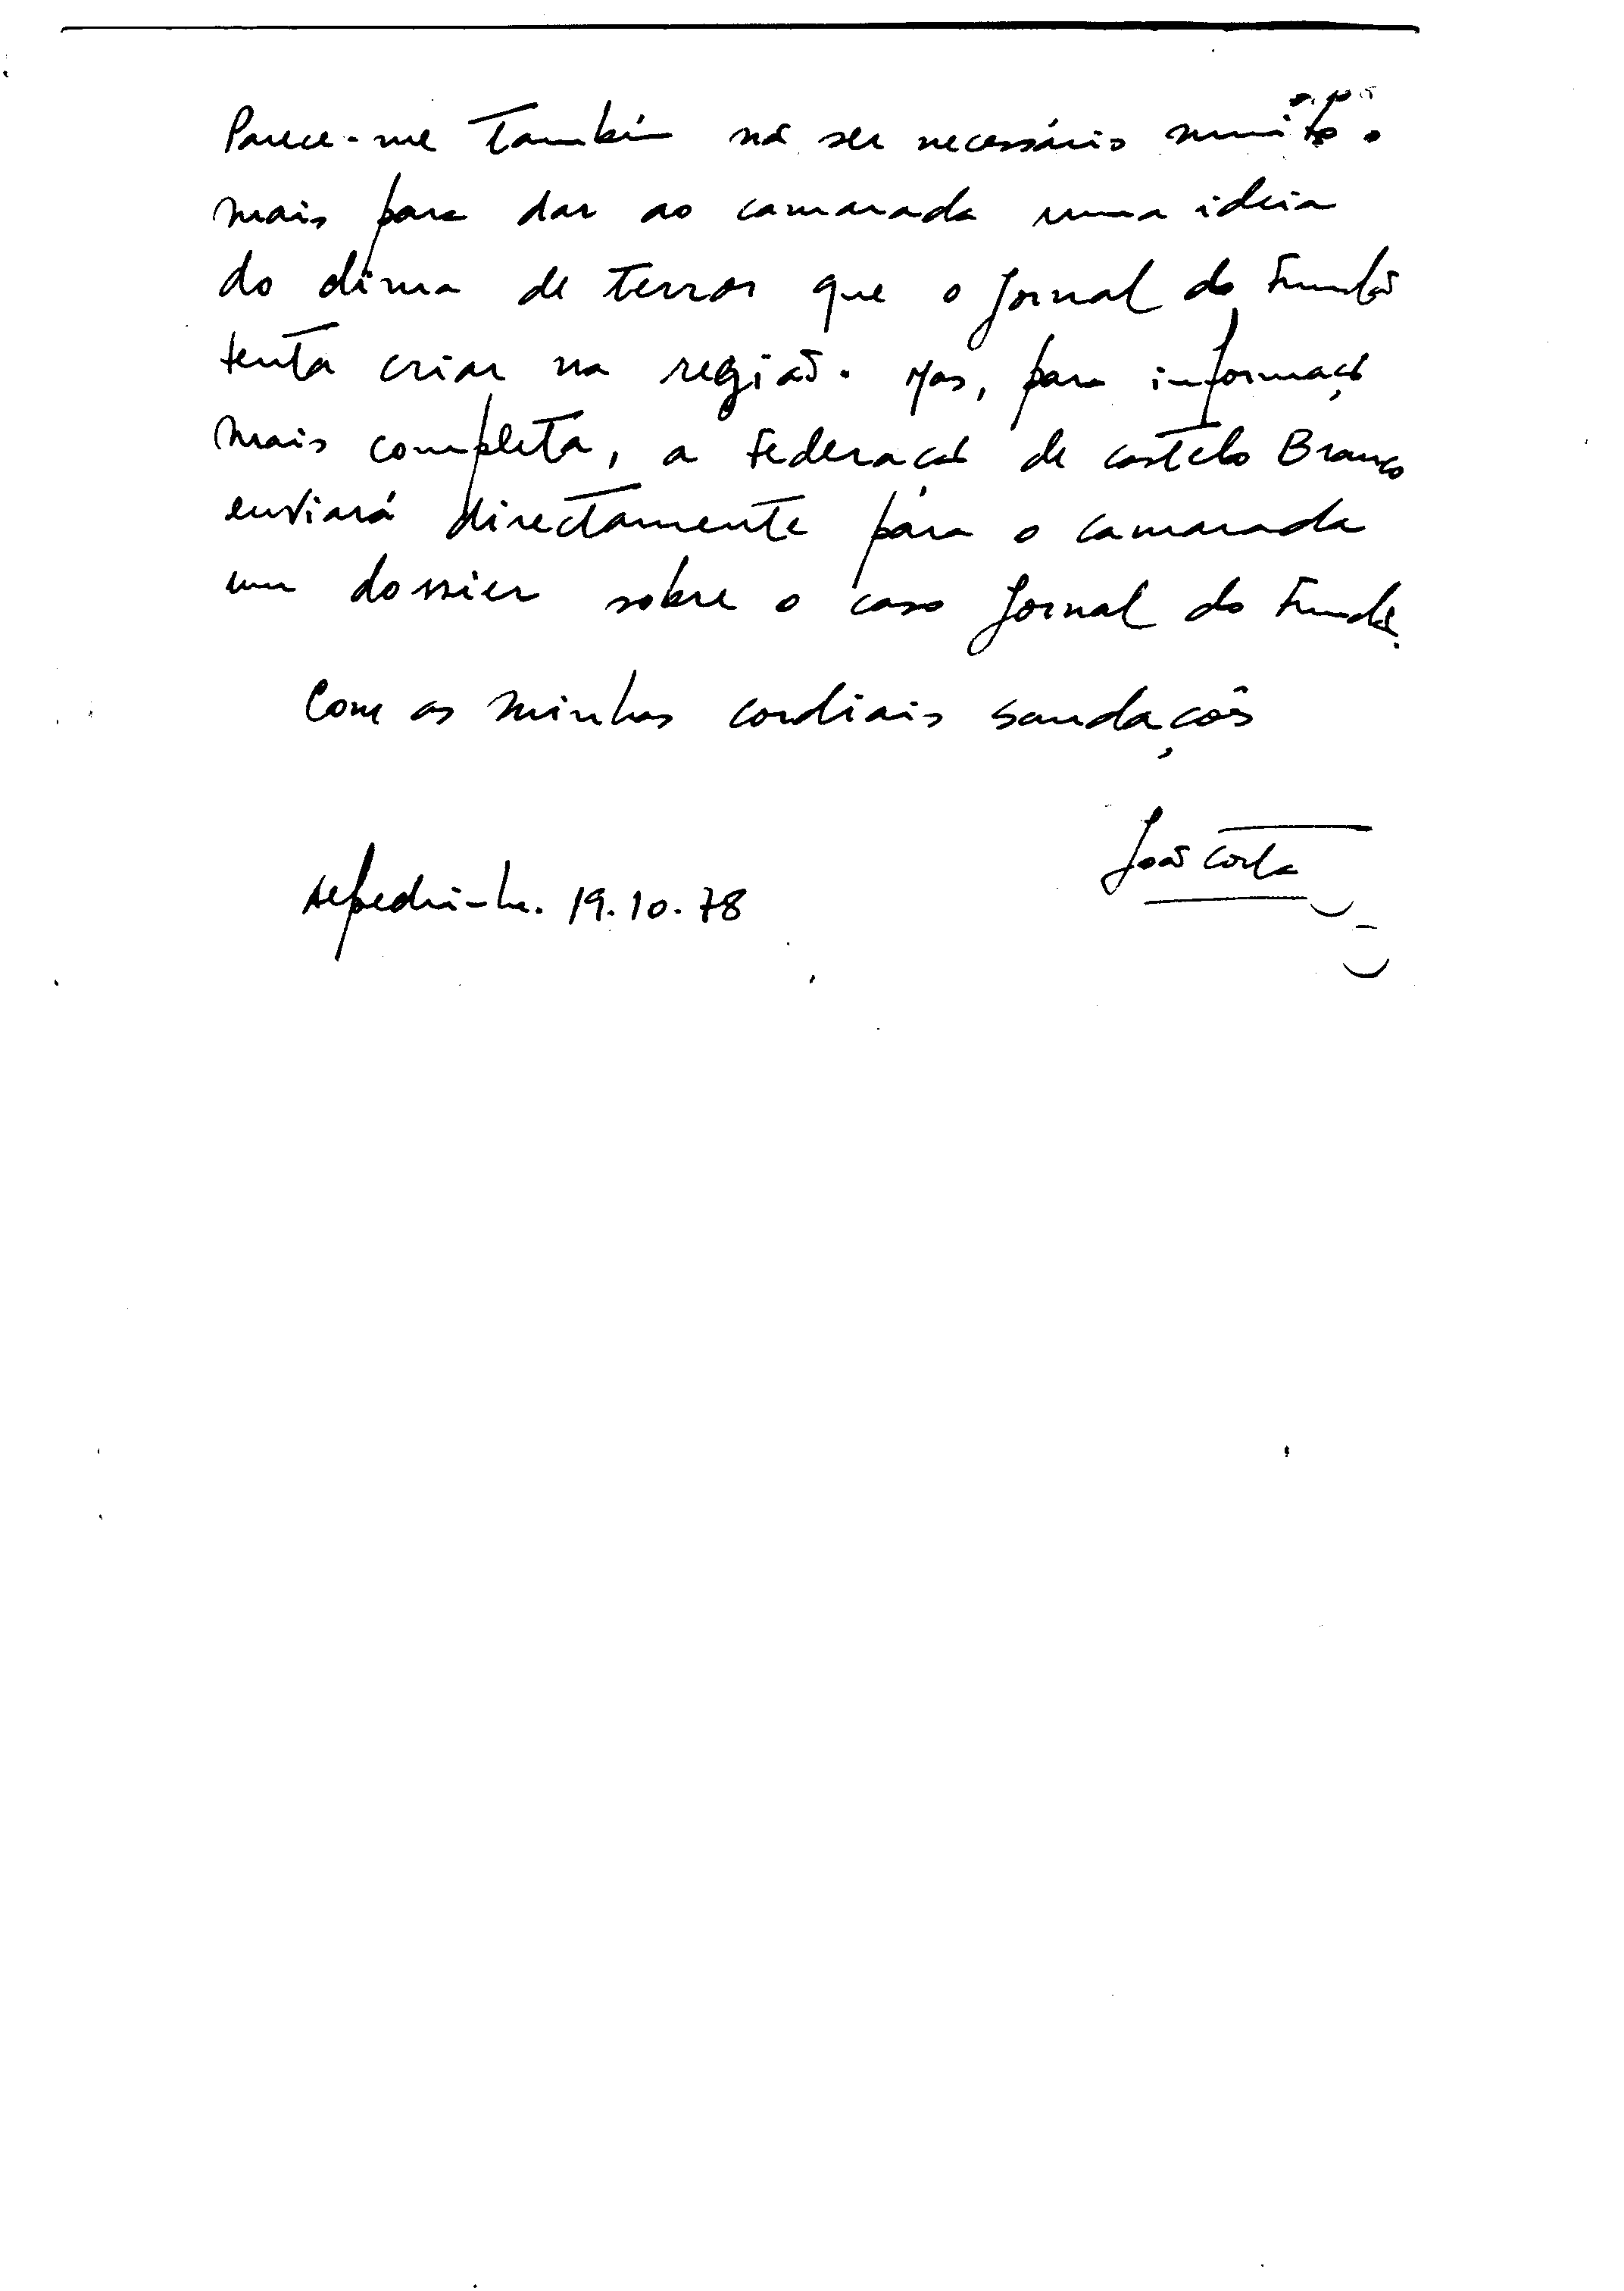 Parece-me também não ser necessário muito
mais para dar ao camarada uma ideia
do clima de terror que o Jornal do Fundão
tenta criar na região. Mas, para informação
mais completa, a Federação de Castelo Branco
enviará directamente para o camarada
um dossier sobre o caso Jornal do Fundão.
Com as minhas cordiais saudações
João Costa
Alpedrinha. 19.10.78